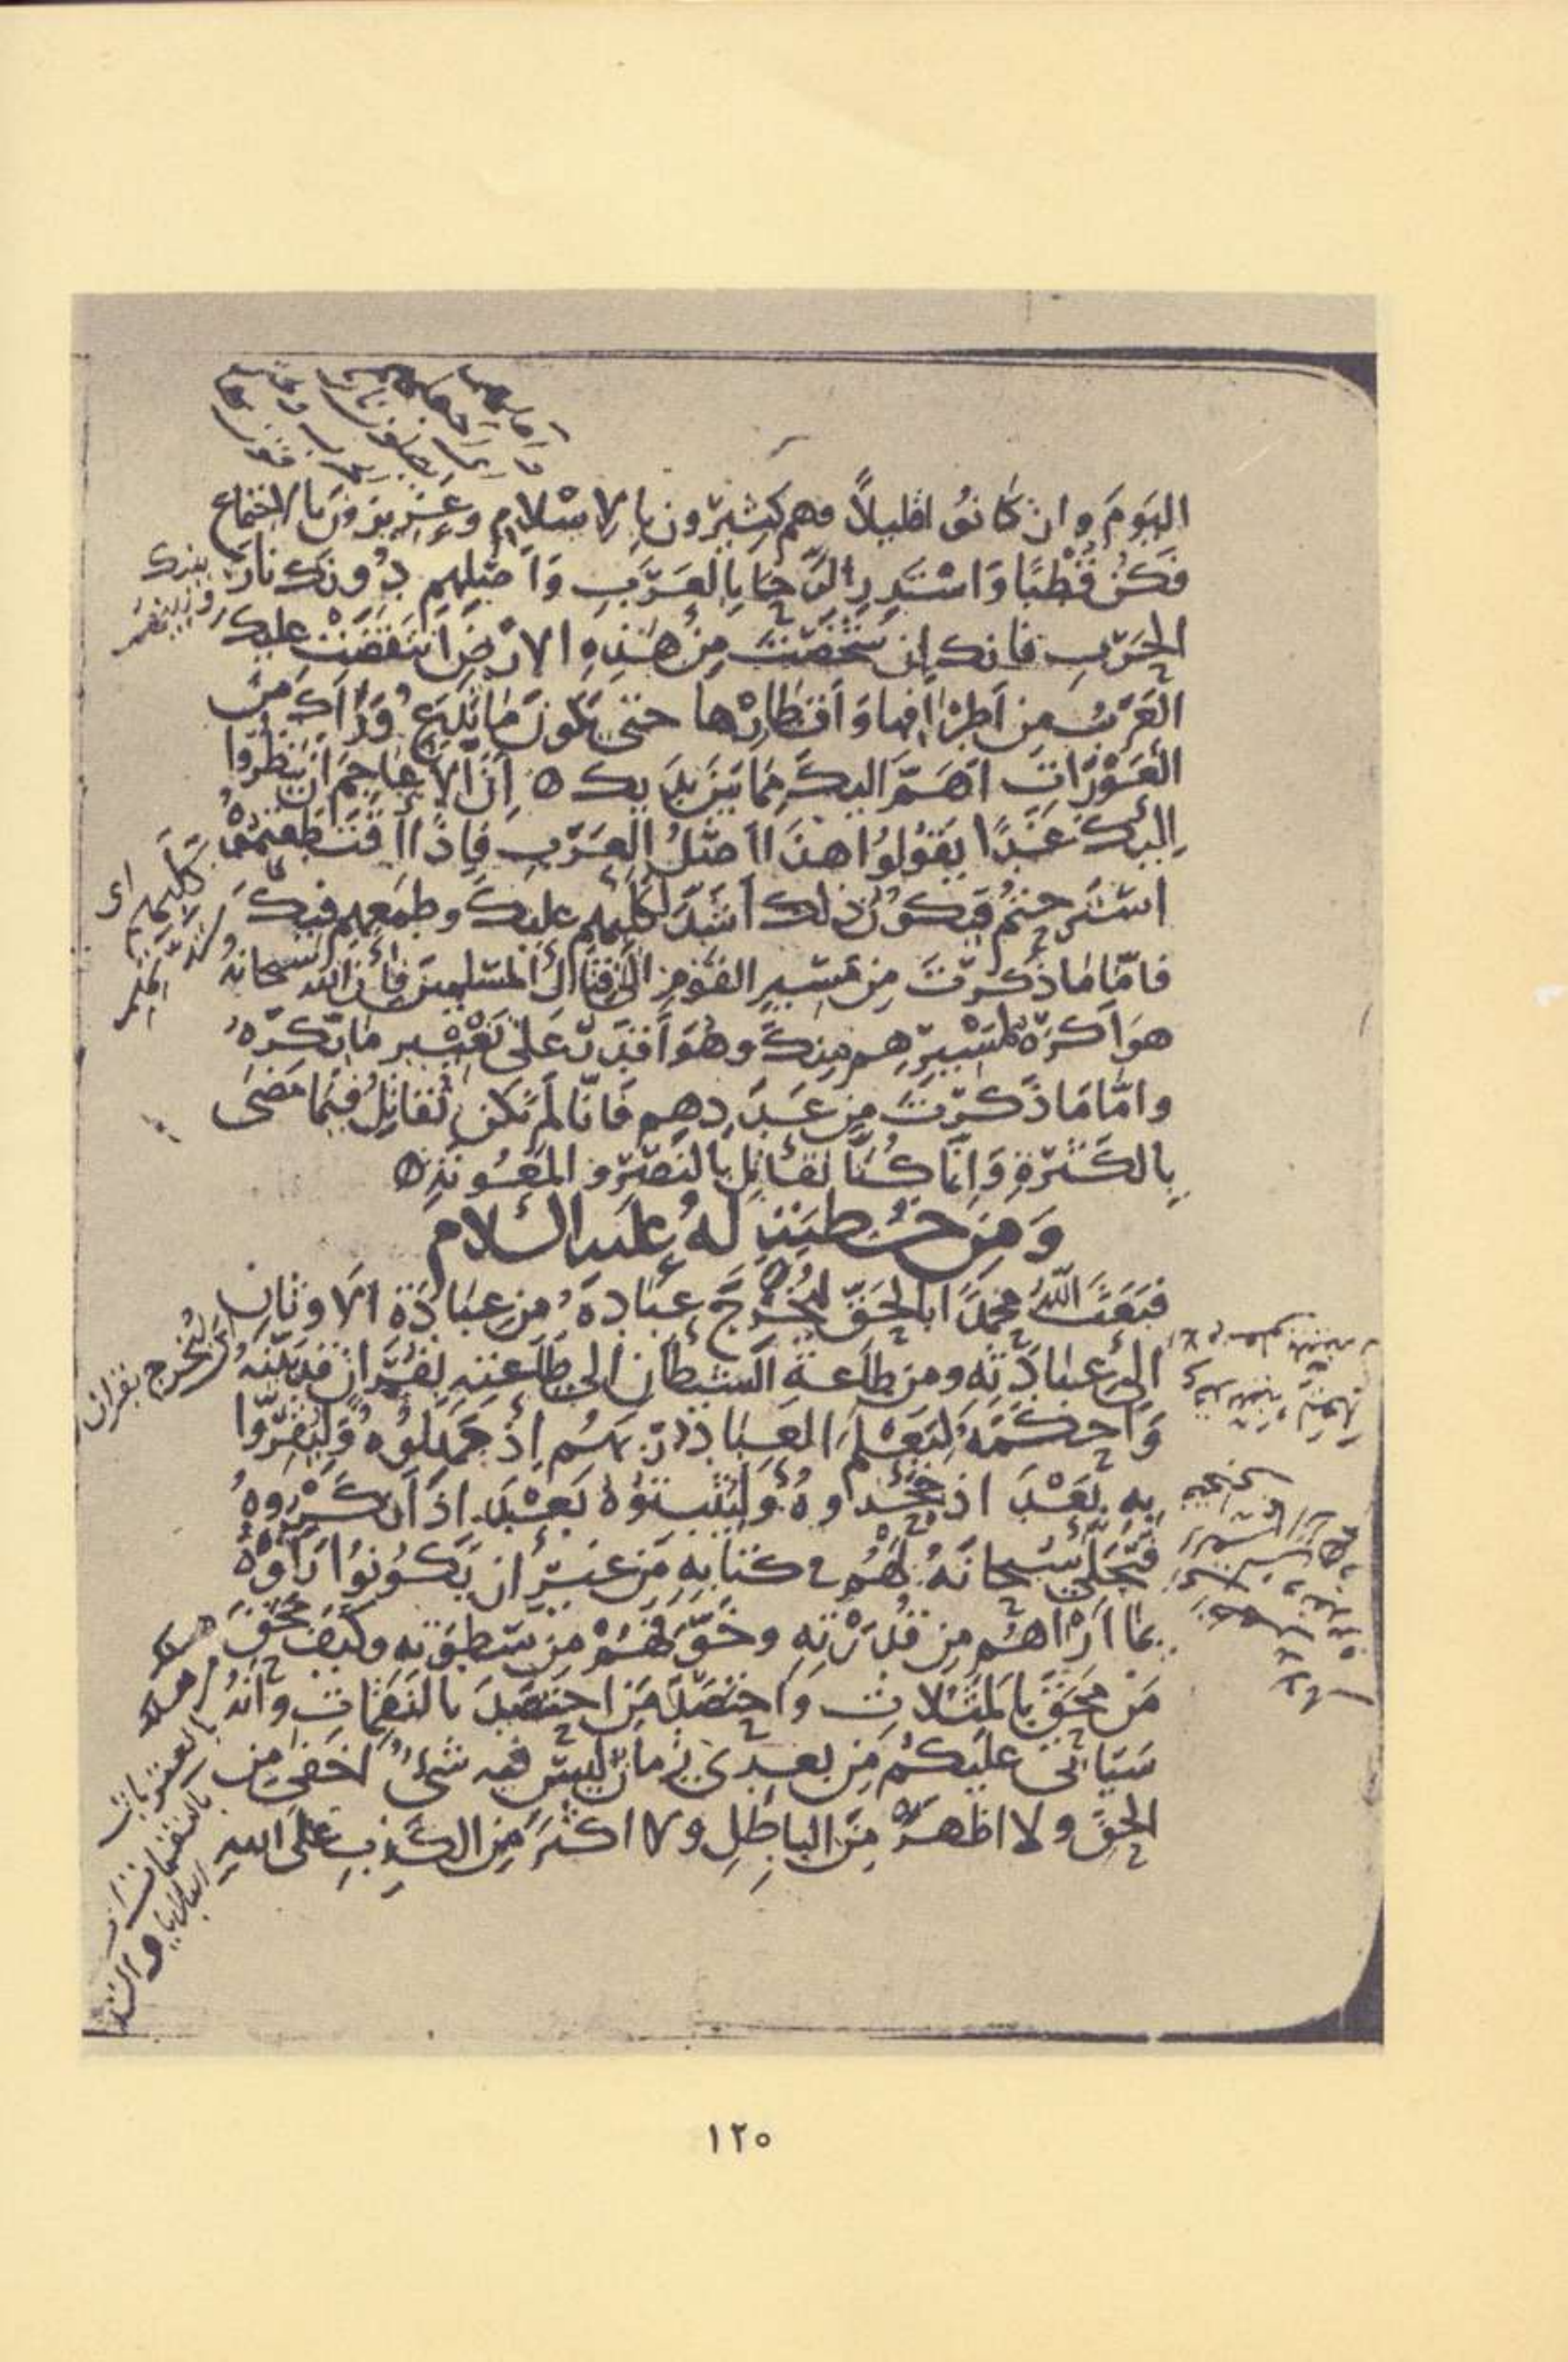 اليَومَ وان كانوُا قليلاً فهم كثِيرون بِالاسْلامِ وعَزِيزونَ بالاجتماع
فكُن قُطْبًا وَاسْتَدِرِ الرَّحَا بِالعَرَبِ وَأَصْلِهِم دُونَكَ نارَ
الحَرْبِ فانك إن شَخَصْتَ مِنْ هَذِهِ الارْضِ انتَقَضَتْ عليكَ
العَرَبُ مِن اَطْرَافِها وَاَقطارِها حتى يَكونَ مَا تَدَعُ وَرَاكَ مِنَ
العَوْرَاتِ اَهَمَّ اليكَ مِمّا بَيْنَ يَدَيك ٥ اِنّ الأعاجِمَ ان يَنظُرُوا
اِليكَ غَدًا يَقُولُوا هذَا اَصْلُ العَرَبِ فَاِذَا اقتَطَعتُمُوْهُ
اسْتَرَحْتُم فيَكُونُ ذلك اَشَدَّ لِكَلَبِهم عليكَ وطَمَعِهِم فيكَ
فامَّا مَا ذَكَرْتَ مِن مَسِيرِ القَوْمِ اِلى قِتَالِ المُسْلمِينَ فإنّ الله سُبحانهُ
هوَ اَكرَهُ لمَسِيرِهِم مِنكَ وهُوَ اَقدَرُ عَلى تَغْيِيرِ مَا يَكرَهُ
وامَّا مَا ذَكَرْتَ مِن عَدَدِهِم فَانّا لَم نَكن نُقاتِلُ فيمَا مَضَى
بِالكَثْرةِ وَانَّما كُنَّا نُقاتِلُ بالنَصْرِ والمَعُونَةِ ٥
وَمِنْ خُطبَةٍ لهُ عليه السلام
فبَعَثَ اللهُ محمدًا بالحَقّ ليُخْرِجَ عِبَادَهُ مِن عِبَادَة الاَوثَانِ
الى عبَادَتِه ومن طاعَةِ الشيطان الى طاعتِهِ بقُرآنٍ قد بَيَّنهُ
وَاَحكَمَهُ لِيَعْلَمَ العِبَادُ رَبَّهُم اِذْ جَهِلُوهُ وَلِيُقِرُّوا
بِه بَعْدَ اذ جَحَدُوهُ وَلِيُثبِتوُهُ بَعْدَ اذ اَنكَرُوهُ
فتَجَلّى سُبحانَهُ لَهُم في كتابِه مِن غيرِ ان يَكُونُوا رَاَوْهُ
بِما اَرَاهُم مِن قُدرَتِه وخَوَّفَهُمْ مِن سَطوَتِه وكيفَ مَحَقَ
مَنْ مَحَقَ بالمَثُلاتِ وَاحتَصَدَ مَنِ احتَصَدَ بالنَقِماتِ وَاَنهُ
سَيَاتى عليكُم مِن بعدِى زمانٌ ليسَ فيه شَىءٌ اخفَى مِن
الحَقِّ ولا اظهَرَ مِنَ الباطِلِ ولا اكثَرَ مِن الكَذِبِ عَلَى اللهِ
ليُخرج بقران
١٢٥